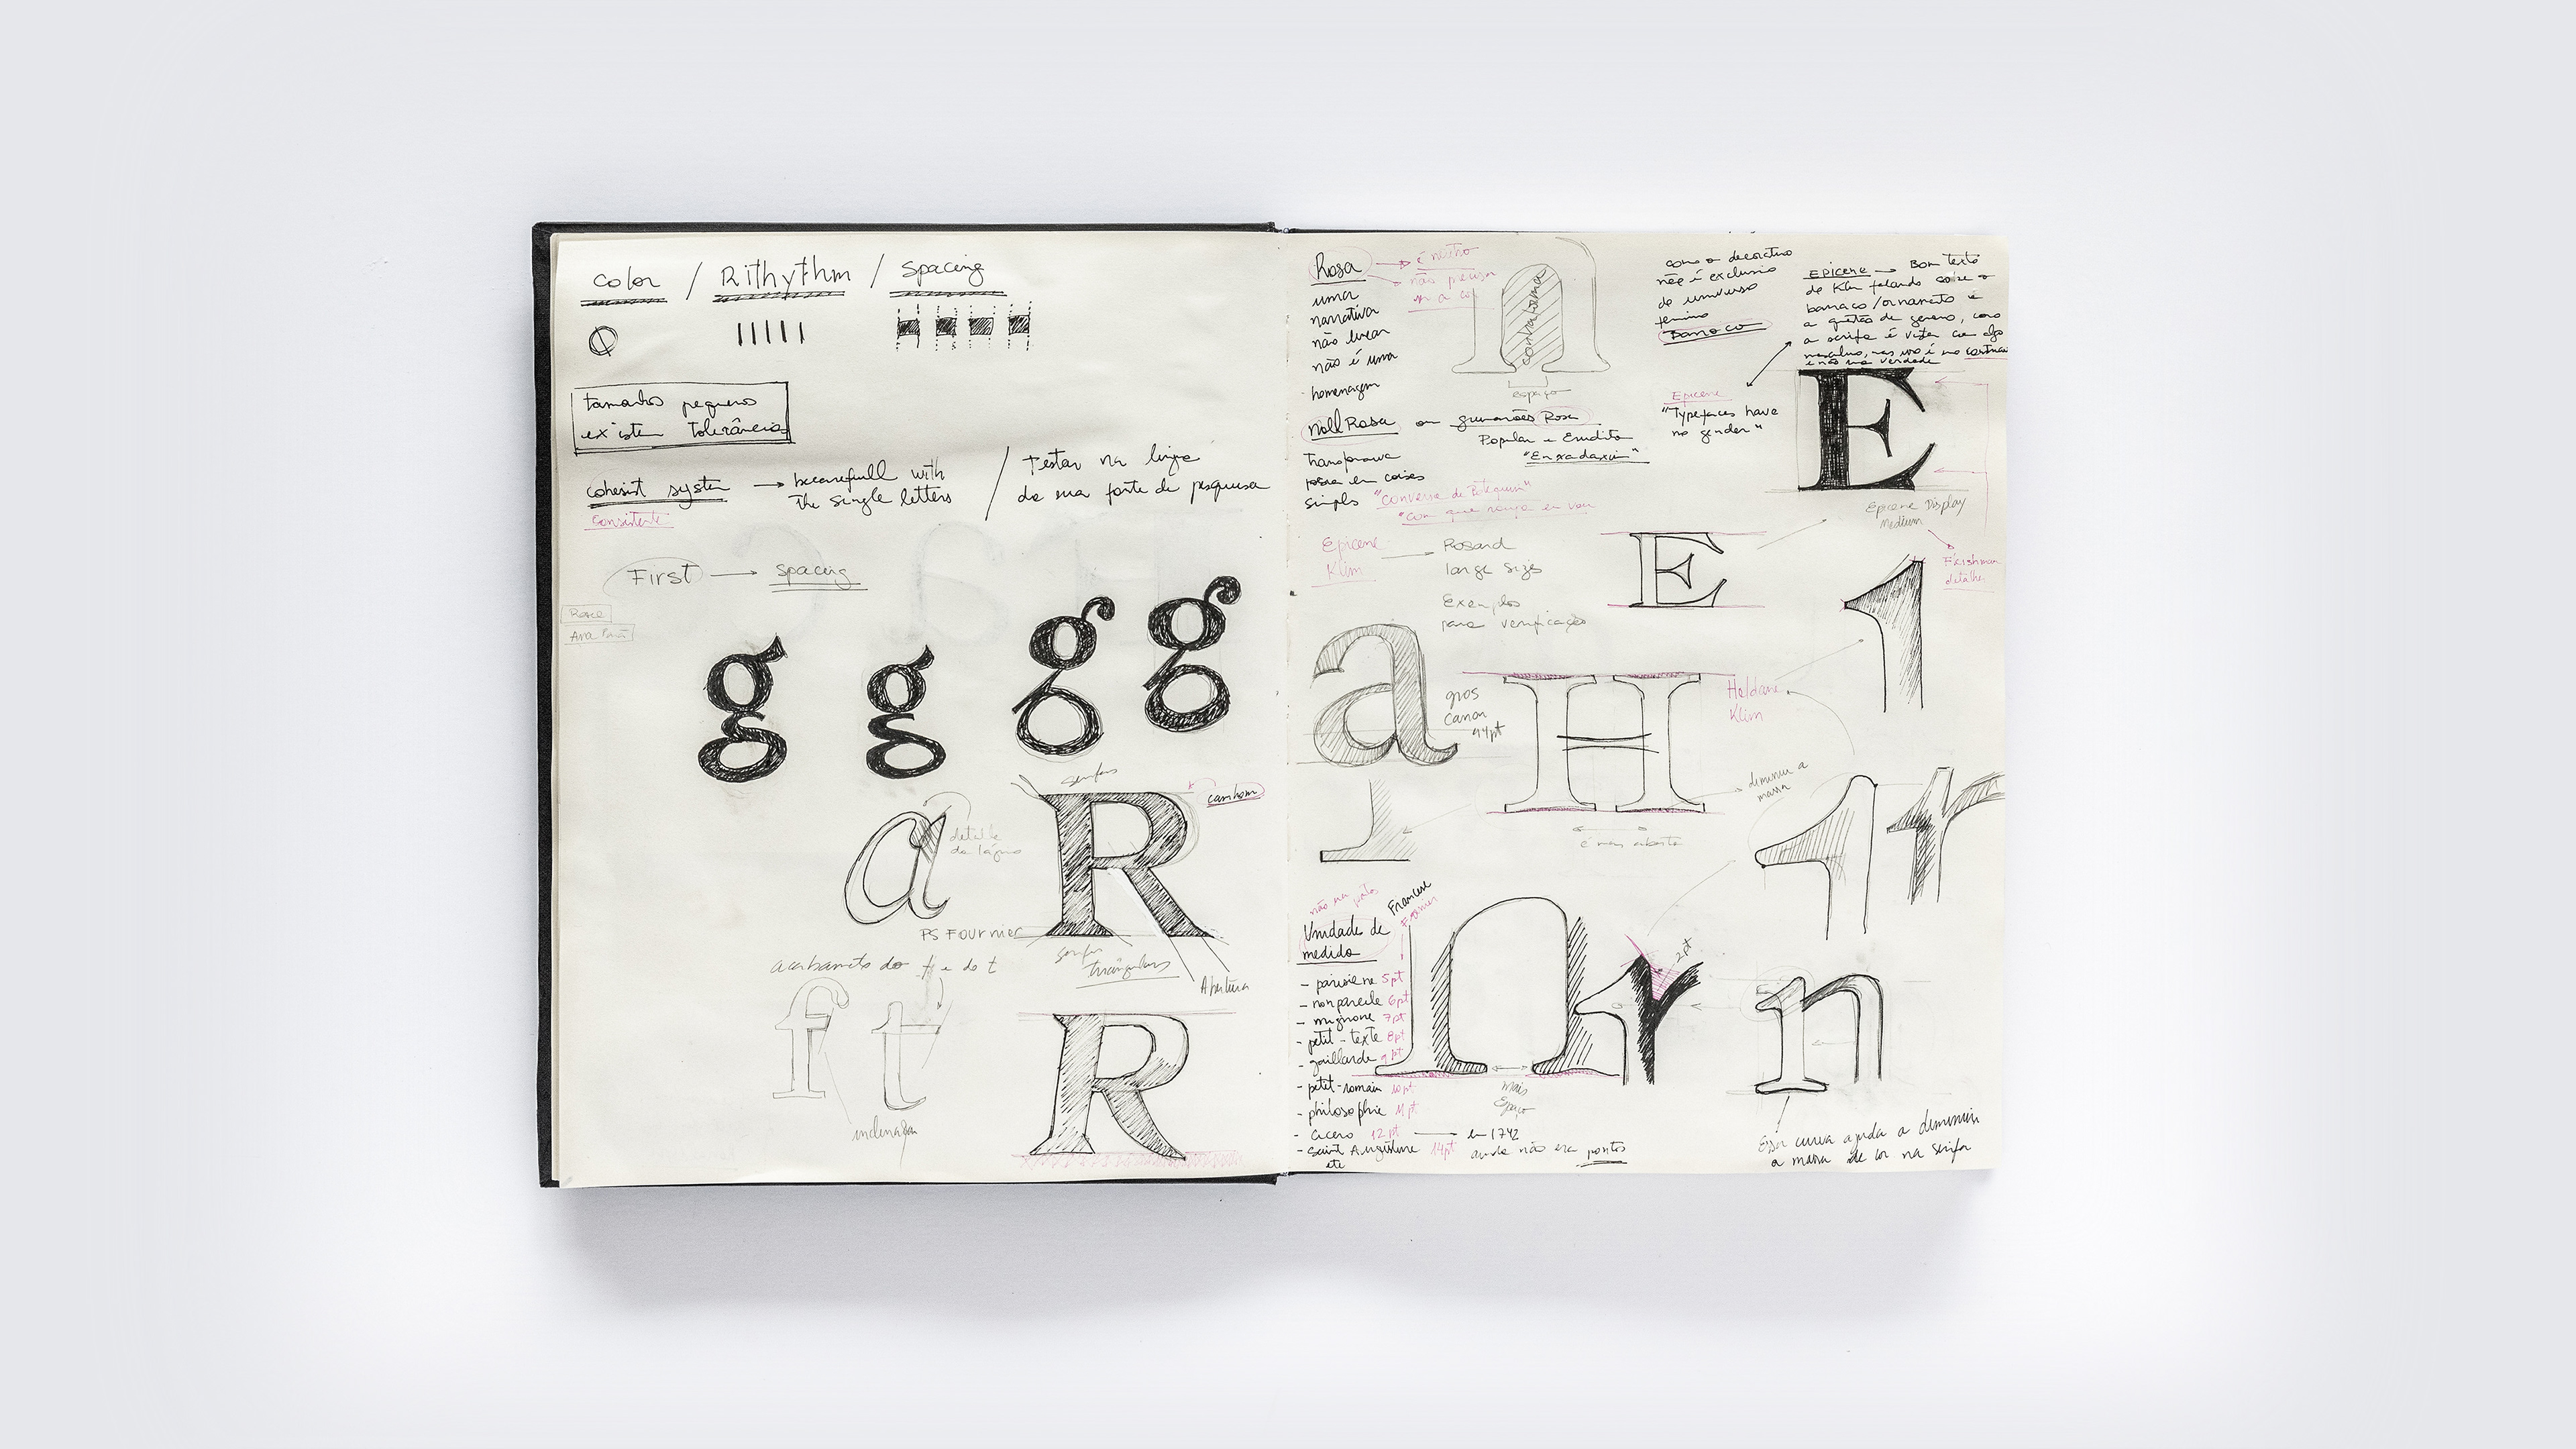 color / Rithythm / Spacing
tamanhos pequenos
existem tolerâncias
cohesist system → becarefull with
the single letters
/ Testar na língua
da sua fonte de pesquisa
consistente
First → spacing
Rosa
Ana
g g g g
serifas
a
detalhe
da lágrima
R
PS Fournier
serifas
triangulares
Abertura
acabamento do f e do t
f t
inclinação
R
Rosa → é neutro
não precisa
uma
narrativa
não linear
não é uma
homenagem
contraforma
espaço
como o decorativo
não é exclusivo
do universo
feminino
Barroco
Epicene → Bom texto
do Klim falando sobre o
barroco/ornamento e
a questão de genero, como
a serifa é vista
Epicene
"Typefaces have
no gender"
E
Epicene Display
Medium
Noel Rosa ou guimarães Rosa
Popular e Erudito
transforma
poesia em coisas
simples
"Conversa de Botequim"
"Com que roupa eu vou
Epicene
Klim
→ Rosart
large sizes
Exemplos
para verificação
E
1
Fleishman
detalhe
a
gros
canon
44pt
H
Heldane
Klim
diminuir a
massa
é mais aberto
Unidades de
medida
- parisiene 5pt
- nonpareile 6pt
- mignone 7pt
- petit-texte 8pt
- gaillarde 9pt
- petit-romain 10pt
- philosophie 11pt
- Cicero 12pt — em 1742
- Saint Augustine 14pt ainda não era pontos
etc
mais
Espaço
2pt
n
Essa curva ajuda a diminuir
a massa de cor na serifa